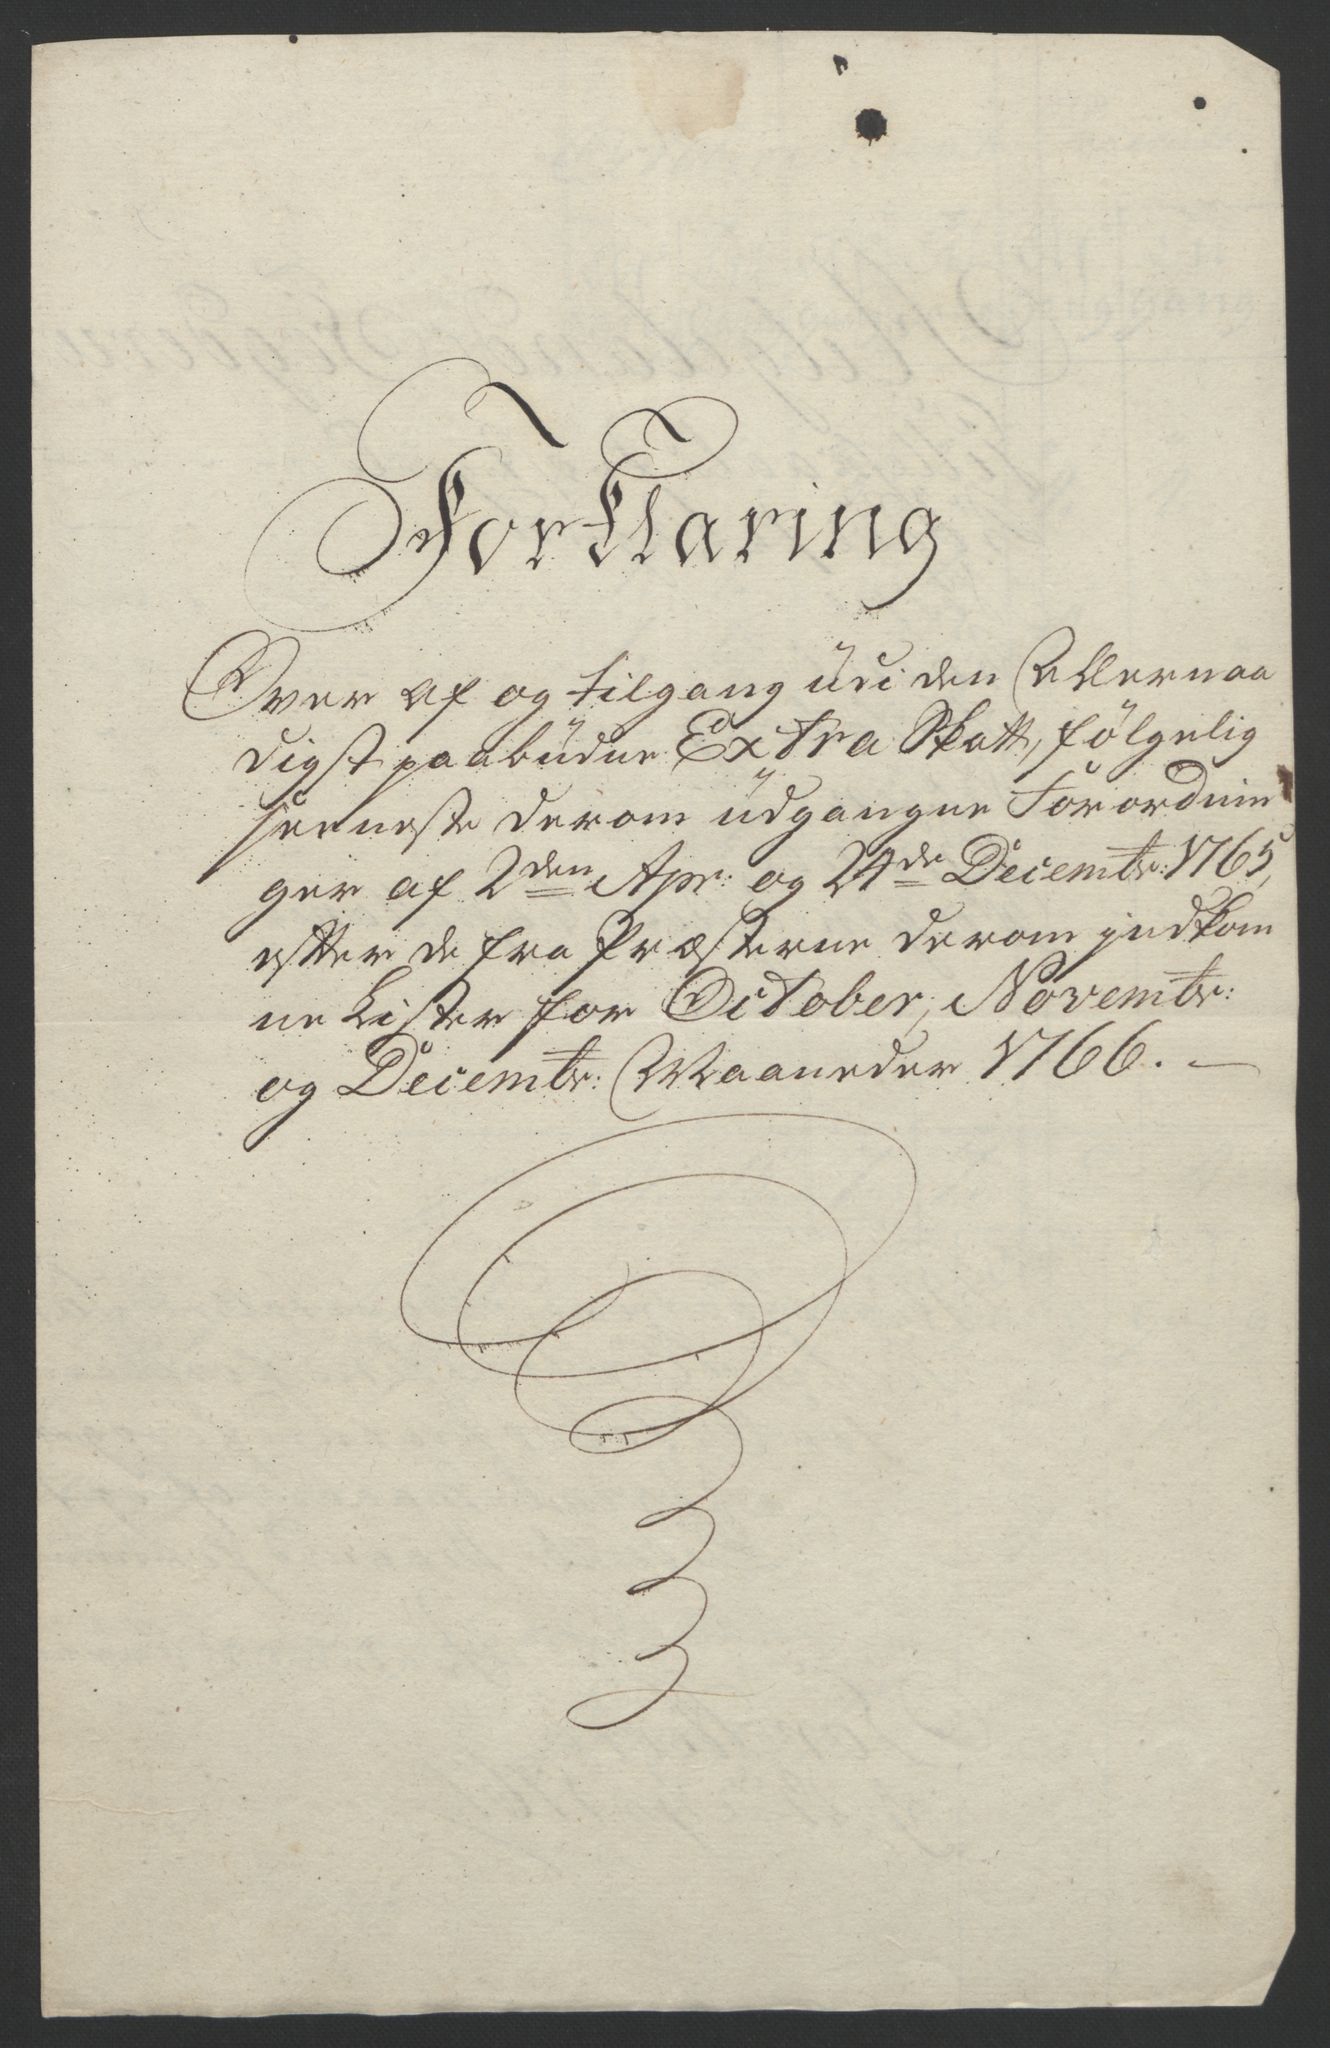 Forklaring
Over af og tilgang udi den Allernaa
digst paabudne Extra Skatt, følgelig
seeneste derom udgangne Forordnin
ger af 2den Apr: og 24de Decembr: 1765,
efter de fra Præsterne derom indkom
ne Lister for October, Novembr:
og Decembr: Maaneder 1766. —